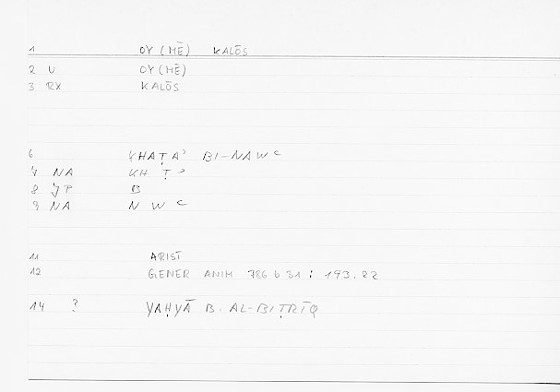 1 OY (MĒ) KALŌS
2 U OY (MĒ)
3 RX KALŌS
6 KHAṬAʾ BI-NAWʿ
7 NA KH Ṭ ʾ
8 JP B
9 NA N W ʿ
11 ARIST
12 GENER ANIM 786 b 31 ; 193.22
14 ? YAḤYĀ B. AL-BIṬRĪQ